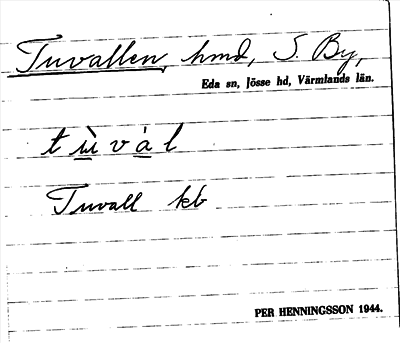 Tuvallen, hmd, S. By,
Eda sn, Jösse hd, Värmlands län.
t ù v à l
Tuvall kb
PER HENNINGSSON 1944.